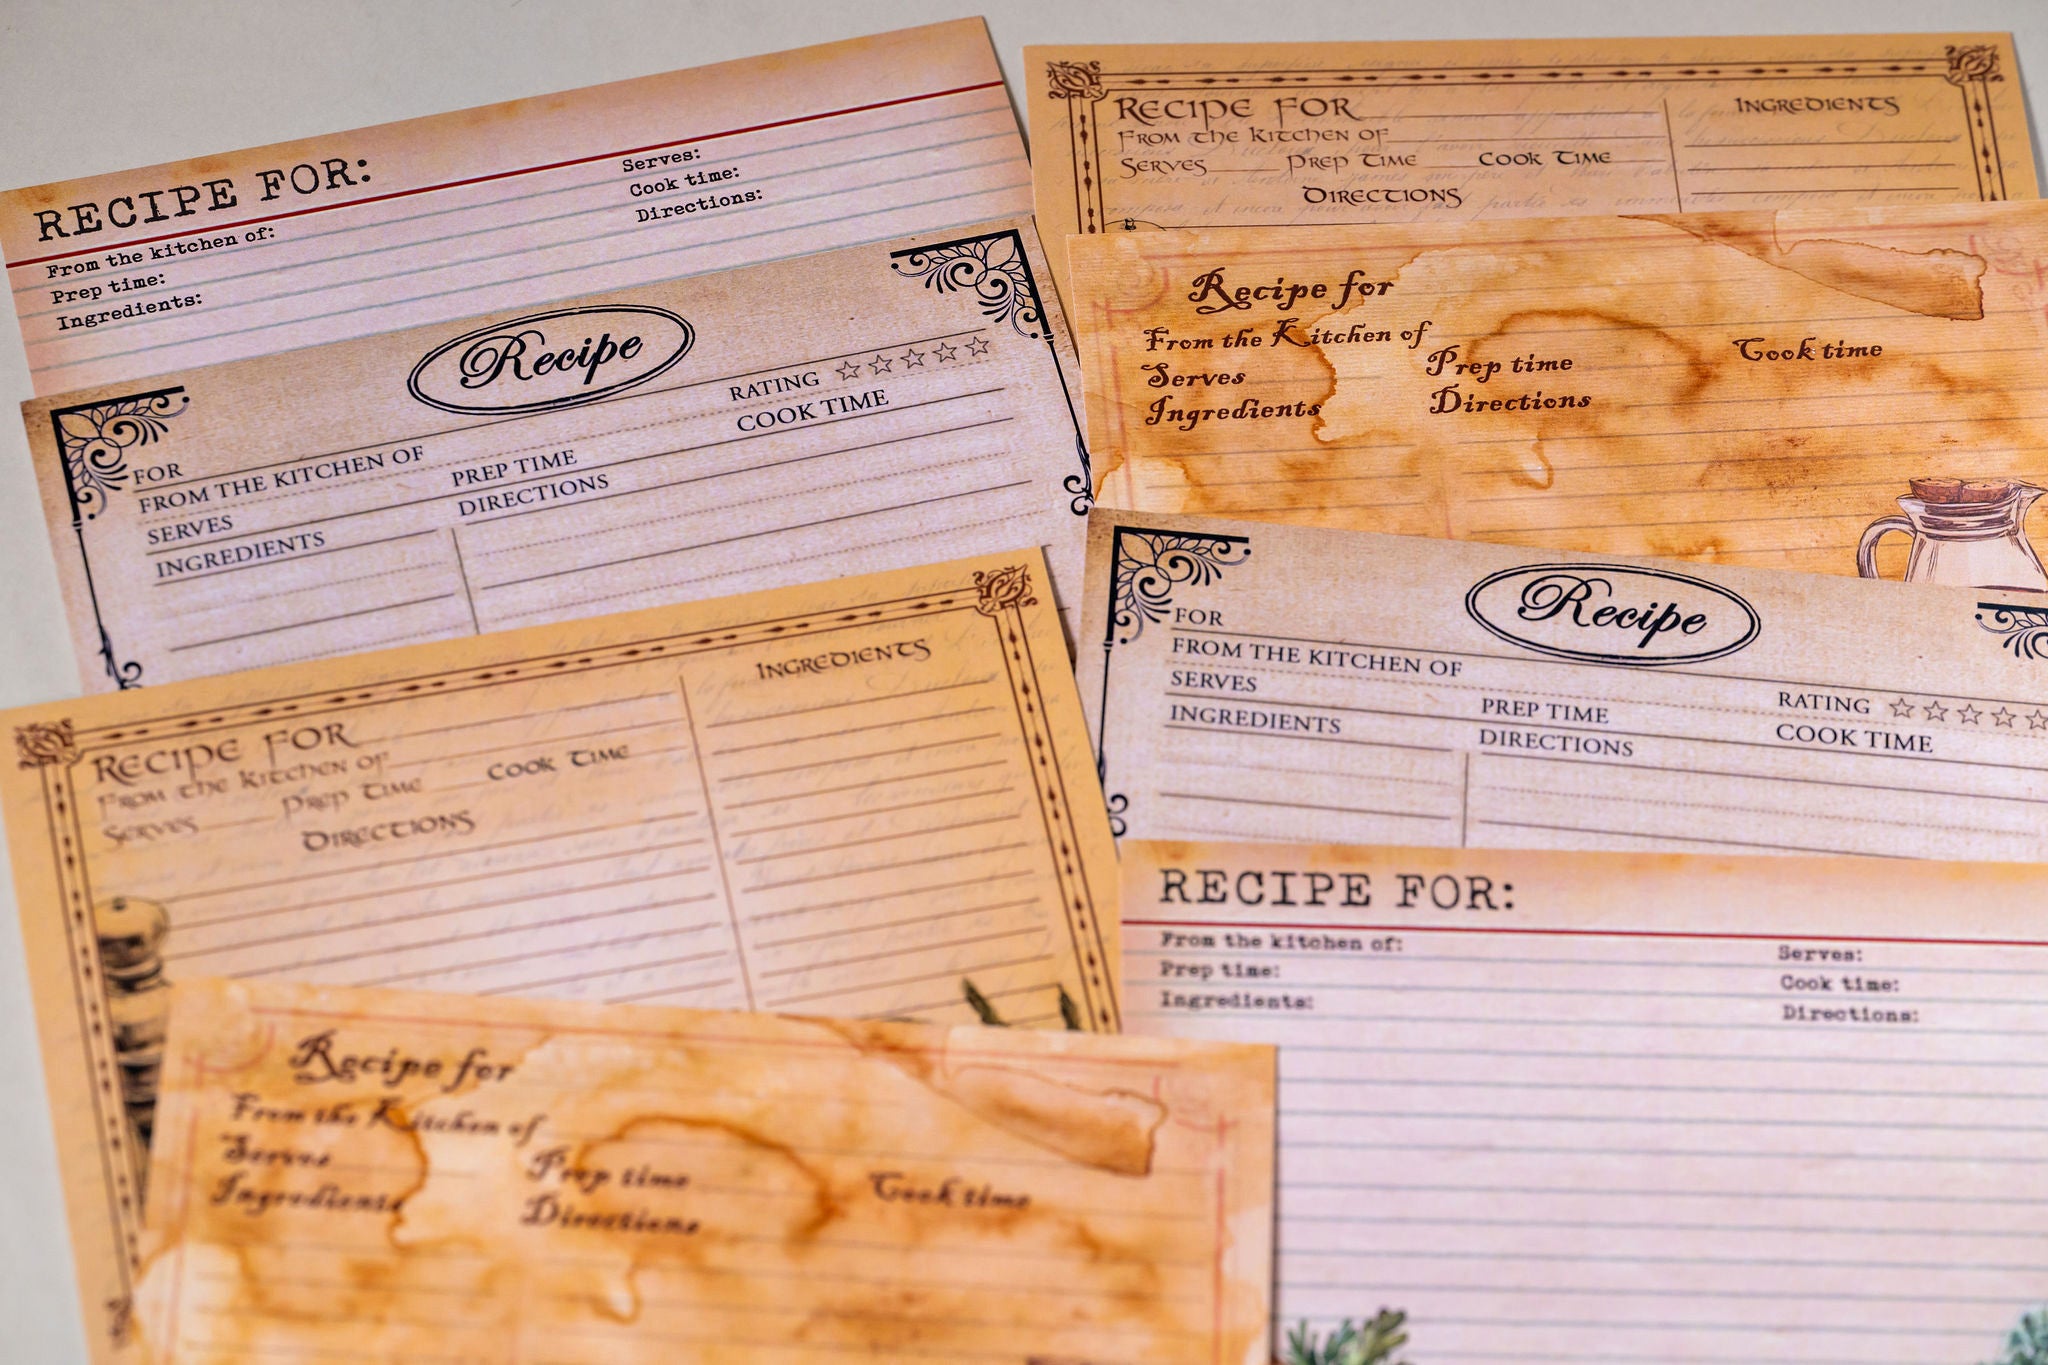 RECIPE FOR:
From the kitchen of:
Serves:
Prep time:
Cook time:
Ingredients:
Directions:
Recipe
FOR
RATING
FROM THE KITCHEN OF
SERVES
PREP TIME
COOK TIME
INGREDIENTS
DIRECTIONS
RECIPE FOR
FROM THE KITCHEN OF
SERVES PREP TIME COOK TIME
DIRECTIONS
INGREDIENTS
Recipe for
From the Kitchen of
Serves
Prep time
Cook time
Ingredients
Directions
RECIPE FOR
INGREDIENTS
FROM THE KITCHEN OF
SERVES PREP TIME COOK TIME
DIRECTIONS
Recipe for
From the Kitchen of
Serves Prep time Cook time
Ingredients Directions
Recipe
FOR
FROM THE KITCHEN OF
SERVES PREP TIME RATING
INGREDIENTS DIRECTIONS COOK TIME
RECIPE FOR:
From the kitchen of: Serves:
Prep time: Cook time:
Ingredients: Directions: